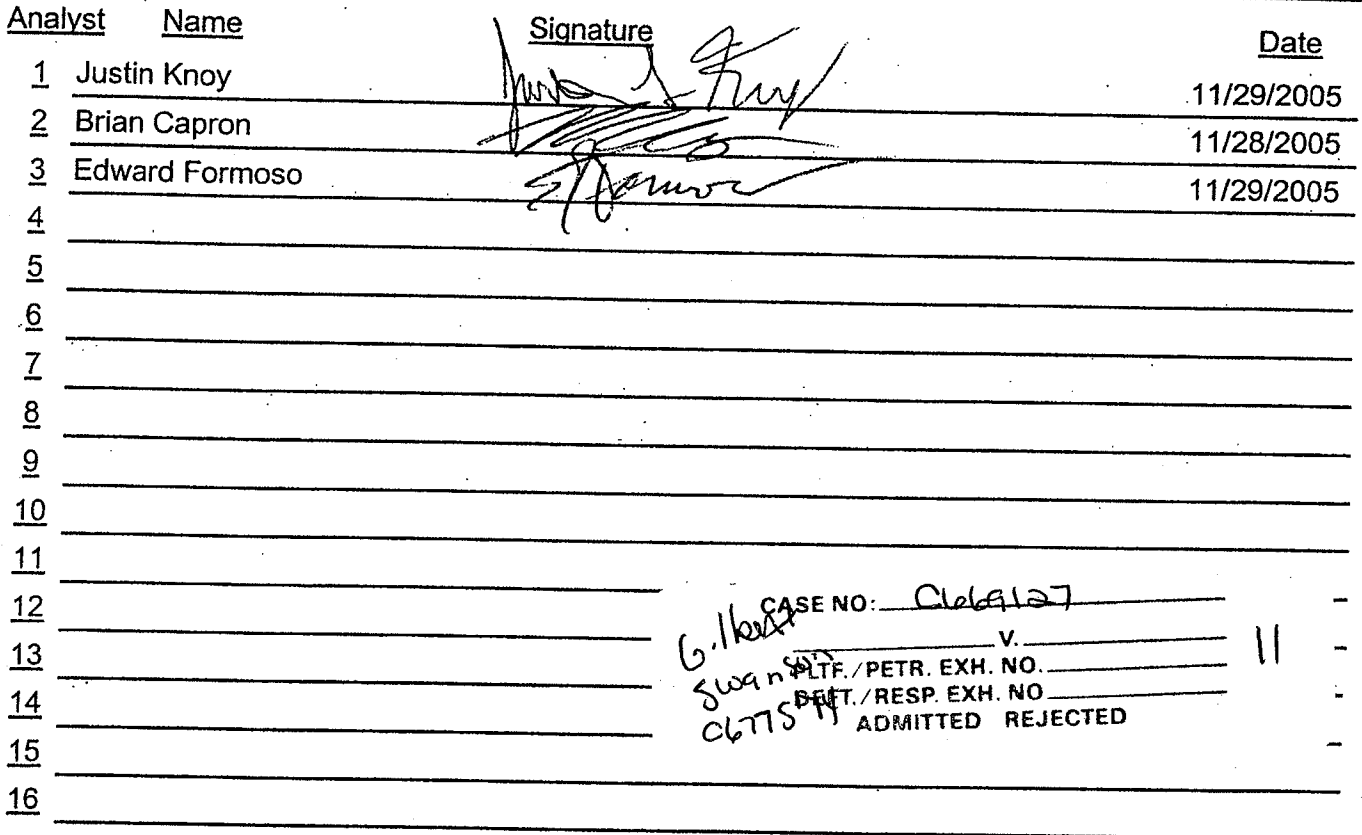 Analyst Name Signature Date
1 Justin Knoy 11/29/2005
2 Brian Capron 11/28/2005
3 Edward Formoso 11/29/2005
4
5
6
7
8
9
10
11
12
13
14
15
16
CASE NO: C669127
Gilbert
V. 11
Swanson PLTF./PETR. EXH. NO.
DEFT./RESP. EXH. NO
ADMITTED REJECTED